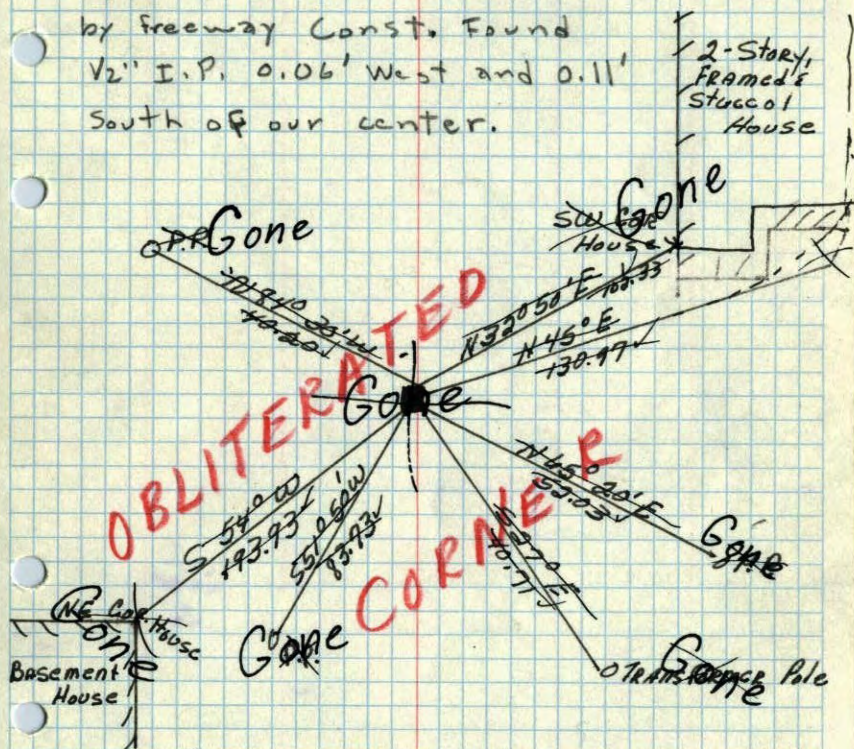 by freeway Const. Found
1/2" I.P. 0.06' West and 0.11'
South of our center.
2-Story,
FRAMED &
Stucco
House
Gone
P.P. Gone
SW COR
House
N32°50'E
102.33
N 45° E
130.97 ✓
N84° 20' W
40.20 ✓
OBLITERATED
Gone
N65° 20' E
52.03 ✓
S 54° W
193.93 ✓
S51° 50' W
83.93 ✓
S27° E
40.71 ✓
CORNER
Gone
NE Cor. House
Gone
Gone
Basement
House
TRANSFORMER Pole
Gone